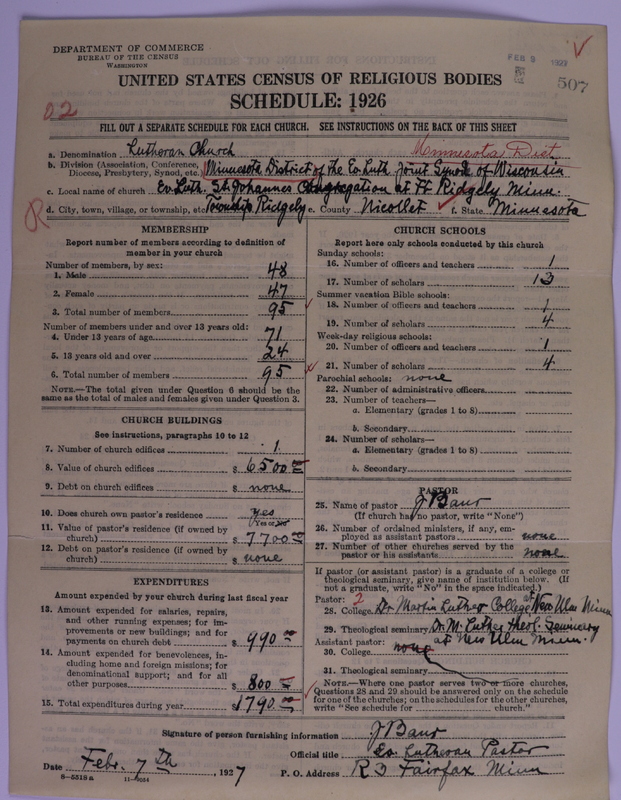 DEPARTMENT OF COMMERCE
BUREAU OF THE CENSUS
WASHINGTON
FEB 9 1927
507
UNITED STATES CENSUS OF RELIGIOUS BODIES
SCHEDULE: 1926
02
FILL OUT A SEPARATE SCHEDULE FOR EACH CHURCH. SEE INSTRUCTIONS ON THE BACK OF THIS SHEET
a. Denomination Lutheran Church Minnesota Dist.
b. Division (Association, Conference, Diocese, Presbytery, Synod, etc.) Minnesota District of the Ev. Luth. Joint Synod of Wisconsin
c. Local name of church Ev. Luth. St. Johannes Congregation at Ft Ridgely Minn.
R d. City, town, village, or township, etc. Township Ridgely e. County Nicollet f. State Minnesota
MEMBERSHIP
Report number of members according to definition of
member in your church
Number of members, by sex:
1. Male 48
2. Female 47
3. Total number of members 95
Number of members under and over 13 years old:
4. Under 13 years of age 71
5. 13 years old and over 24
6. Total number of members 95
NOTE.—The total given under Question 6 should be the
same as the total of males and females given under Question 3.
CHURCH BUILDINGS
See instructions, paragraphs 10 to 12
7. Number of church edifices 1
8. Value of church edifices $ 6500
9. Debt on church edifices $ none
10. Does church own pastor's residence yes
Yes or no
11. Value of pastor's residence (if owned by
church) $ 7700
12. Debt on pastor's residence (if owned by
church) $ none
EXPENDITURES
Amount expended by your church during last fiscal year
13. Amount expended for salaries, repairs,
and other running expenses; for im-
provements or new buildings; and for
payments on church debt $ 990
14. Amount expended for benevolences, in-
cluding home and foreign missions; for
denominational support; and for all
other purposes $ 800
15. Total expenditures during year $ 1790
CHURCH SCHOOLS
Report here only schools conducted by this church
Sunday schools:
16. Number of officers and teachers 1
17. Number of scholars 13
Summer vacation Bible schools:
18. Number of officers and teachers 1
19. Number of scholars 4
Week-day religious schools:
20. Number of officers and teachers 1
21. Number of scholars 4
Parochial schools: none
22. Number of administrative officers
23. Number of teachers—
a. Elementary (grades 1 to 8)
b. Secondary
24. Number of scholars—
a. Elementary (grades 1 to 8)
b. Secondary
PASTOR
25. Name of pastor J Baur
(If church has no pastor, write "None")
26. Number of ordained ministers, if any, em-
ployed as assistant pastors none
27. Number of other churches served by the
pastor or his assistants none
If pastor (or assistant pastor) is a graduate of a college or
theological seminary, give name of institution below. (If
not a graduate, write "No" in the space indicated.)
Pastor: 2
28. College Dr. Martin Luther College at New Ulm Minn
29. Theological seminary Dr. M. Luther Theol. Seminary
at New Ulm Minn.
Assistant pastor: none
30. College
31. Theological seminary
NOTE.—Where one pastor serves two or more churches,
Questions 28 and 29 should be answered only on the schedule
for one of the churches; on the schedules for the other churches,
write "See schedule for church."
Signature of person furnishing information J Baur
Official title Ev. Lutheran Pastor
Date Febr. 7th, 1927 P. O. Address R 3 Fairfax Minn